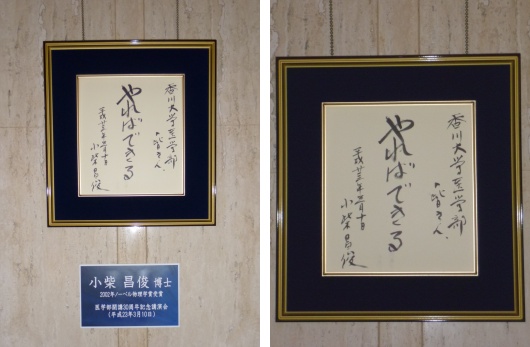 香川大学医学部
の皆さん
やればできる
平成廿三年三月十日
小柴昌俊
小柴 昌俊 博士
2002年ノーベル物理学賞受賞
医学部開講30周年記念講演会
(平成23年3月10日)
香川大学医学部
の皆さん
やればできる
平成廿三年三月十日
小柴昌俊